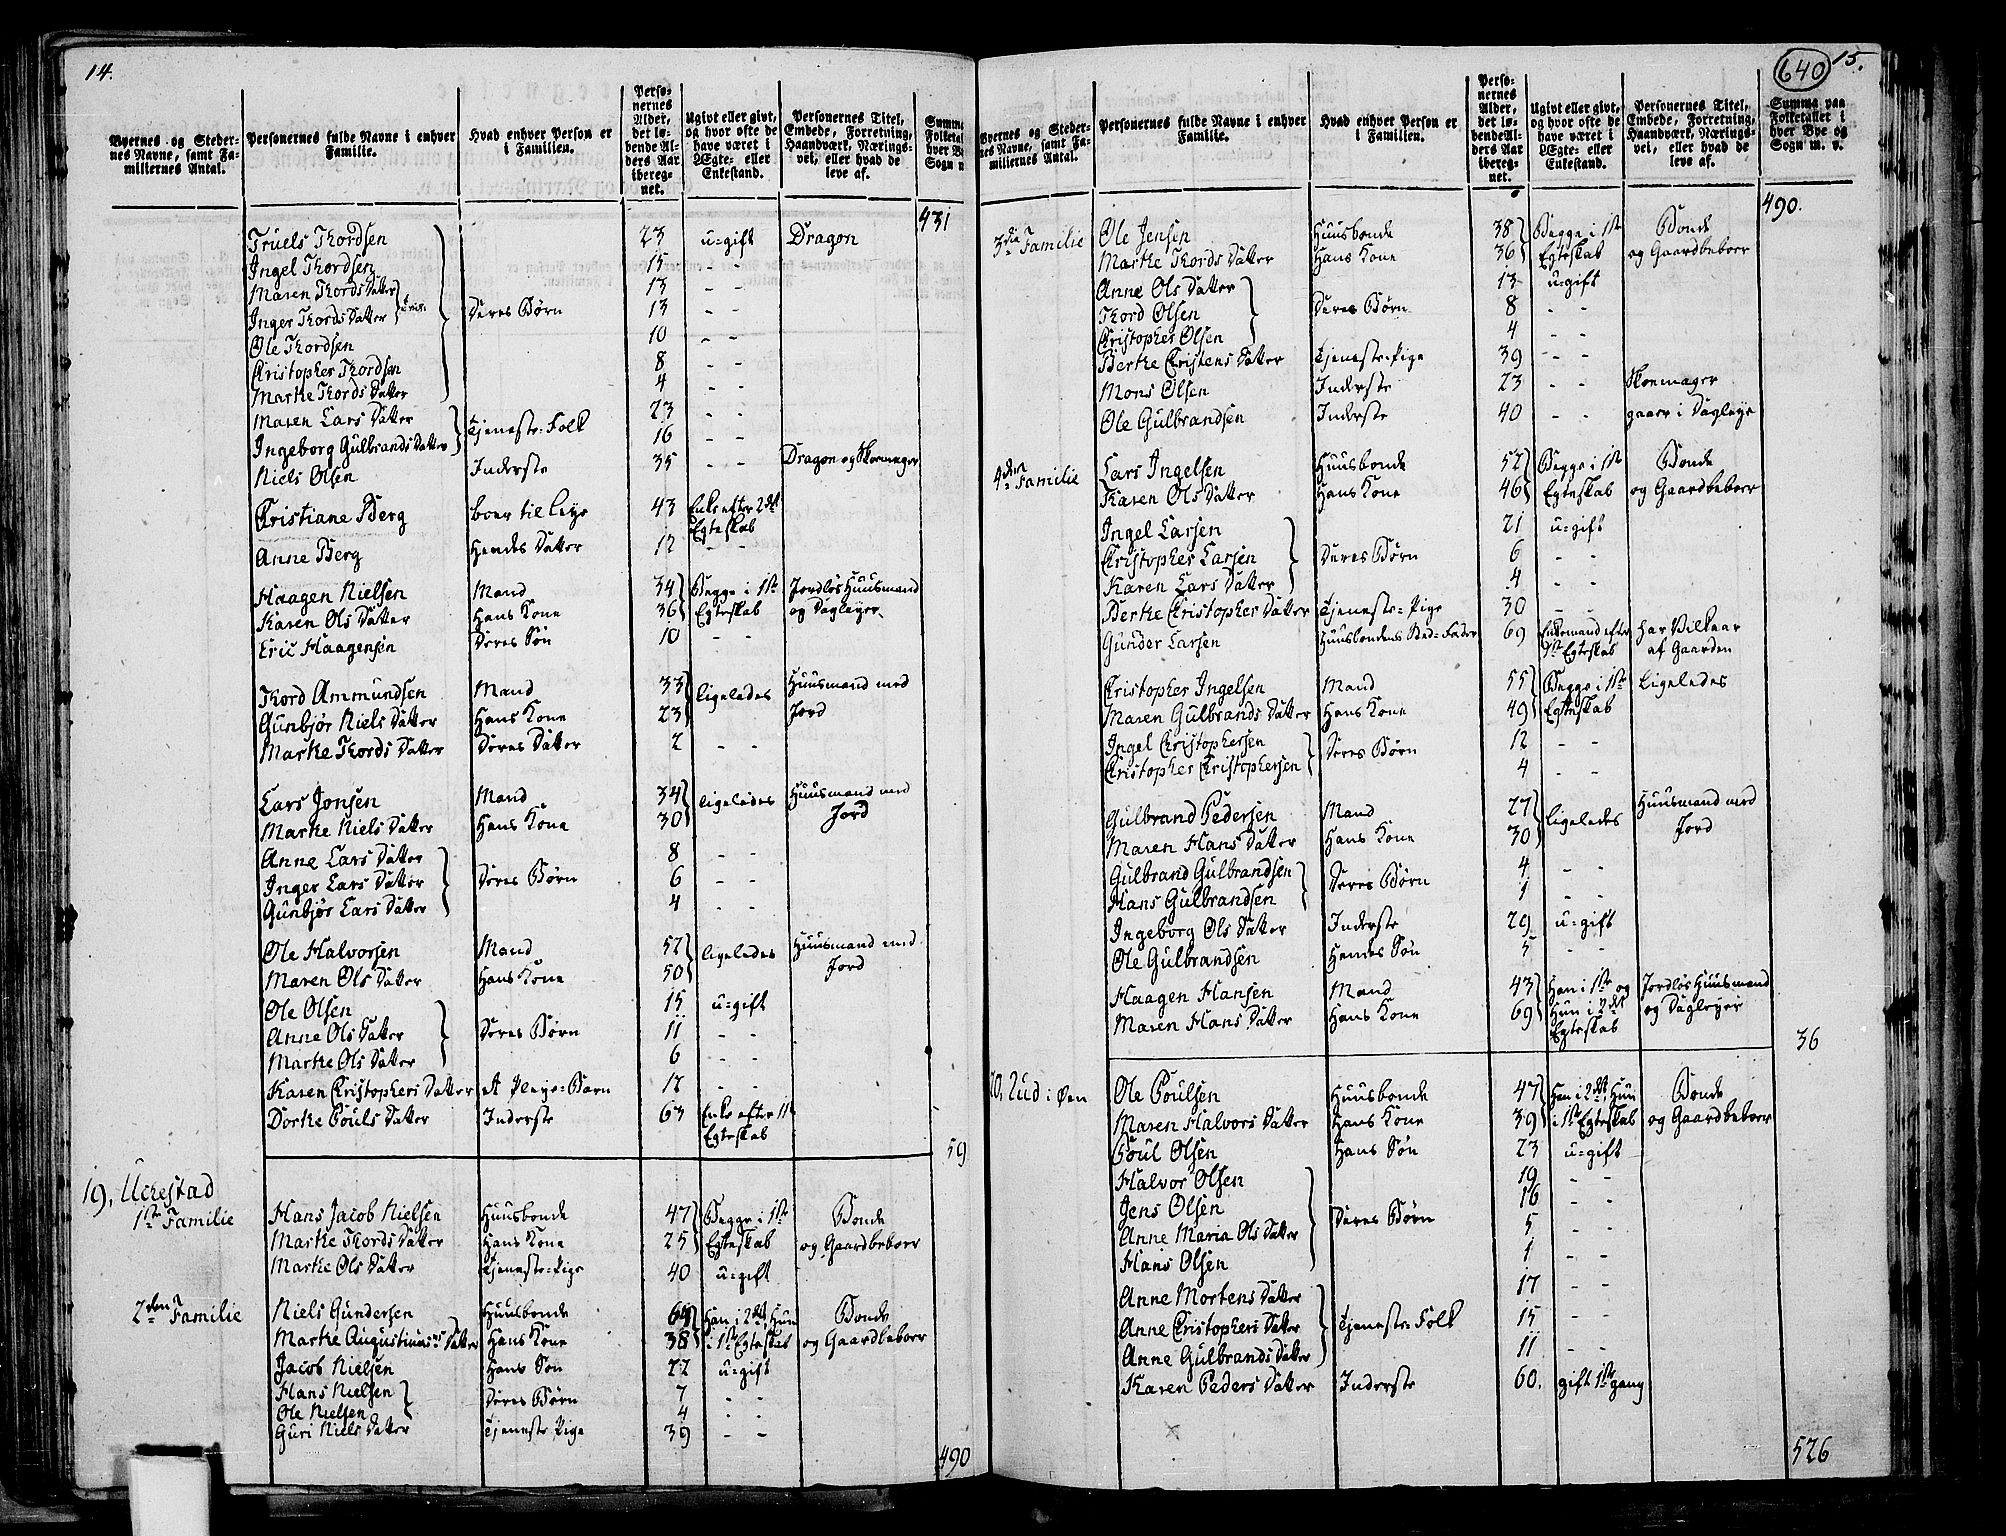 14.
Byernes og Stedernes Navne, samt Familiernes Antal.
Personernes fulde Navne i enhver Familie.
Hvad enhver Person er i Familien.
Personernes Alder, det løbende Alders Aar iberegnet.
Ugivt eller givt, og hvor ofte de have været i Ægte- eller Enkestand.
Personernes Titel, Embede, Forretning, Haandværk, Næringsvei, eller hvad de leve af.
431
Truels Thordsen 23 u=gift Dragon
Ingel Thordsen 15 - -
Maren Thords Datter 13 - -
Inger Thords Datter Deres Børn 13 - -
Ole Thordsen 10 - -
Christopher Thordsen 8 - -
Marthe Thords Datter 4 - -
Maren Lars Datter Tjeneste=Folk 23 - -
Ingeborg Gulbrands Datter 16
Niels Olsen Inderste 35 - - Dragon og Skoemager
Christiane Berg boer til Leye 43 Enke efter 2det Egteskab
Anne Berg Hendes Datter 12 - -
Haagen Nielsen Mand 34 Begge i 1ste Jordløs Huusmand
Karen Ols Datter Hans Kone 36 Egteskab og Dagleyer
Eric Haagensen Deres Søn 10 - -
Thord Ammundsen Mand 33 ligeledes Huusmand med
Gunbjør Niels Datter Hans Kone 23 Jord
Marthe Thords Datter Deres Datter 2 - -
Lars Jonsen Mand 34 ligeledes Huusmand med
Marthe Niels Datter Hans Kone 30 Jord
Anne Lars Datter 8 - -
Inger Lars Datter Deres Børn 6 - -
Gunbjør Lars Datter 4 - -
Ole Halvorsen Mand 52 ligeledes Huusmand med
Maren Ols Datter Hans Kone 50 Jord
Ole Olsen 15 u=gift
Anne Ols Datter Deres Børn 11 - -
Marthe Ols Datter 6 - -
Karen Christophers Datter et Pleye=Barn 12 - -
Dorthe Pouls Datter Inderste 63 Enke efter 1ste Egteskab
59
19, Uckestad
1ste Familie Hans Jacob Nielsen Huusbonde 47 Begge i 1ste Bonde
Marthe Thords Datter Hans Kone 25 Egteskab og Gaardbeboer
Marthe Ols Datter Tjeneste=Pige 40 u=gift
2den Familie Niels Gundersen Huusbonde 64 Han i 2det, Hun Bonde
Marthe Augustinus Datter Hans Kone 38 i 1ste Egteskab og Gaardbeboer
Jacob Nielsen Hans Søn 22 u=gift
Hans Nielsen Deres Børn 7 - -
Ole Nielsen 4 - -
Guri Niels Datter Tjeneste Pige 39 - -
490
640
15.
Byernes og Stedernes Navne, samt Familiernes Antal.
Personernes fulde Navne i enhver Familie.
Hvad enhver Person er i Familien.
Personernes Alder, det løbende Alders Aar iberegnet.
Ugivt eller givt, og hvor ofte de have været i Ægte- eller Enkestand.
Personernes Titel, Embede, Forretning, Haandværk, Næringsvei, eller hvad de leve af.
Summa paa Folketallet i hver Bye og Sogn m. v.
490.
3die Familie Ole Jensen Huusbonde 38 Begge i 1ste Bonde
Marthe Thords Datter Hans Kone 36 Egteskab og Gaardbeboer
Anne Ols Datter 13 u=gift
Thord Olsen Deres Børn 8 - -
Christopher Olsen 4 - -
Berthe Cristens Datter Tjeneste=Pige 39 - -
Mons Olsen Inderste 23 - - Skoemager
Ole Gulbrandsen Inderste 40 - - gaaer i Dagleye
4de Familie Lars Ingelsen Huusbonde 52 Begge i 1ste Bonde
Karen Ols Datter Hans Kone 46 Egteskab og Gaardbeboer
Ingel Larsen 21 u=gift
Christopher Larsen Deres Børn 6 - -
Karen Lars Datter 4 - -
Berthe Christopher Datter Tjeneste=Pige 30 - -
Gunder Larsen Huusbondens Sted=Fader 69 Enkemand efter 1ste Egteskab har Vilkaar af Gaarden
Christopher Ingelsen Mand 55 Begge i 1ste Ligeledes
Maren Gulbrands Datter Hans Kone 49 Egteskab
Ingel Christophersen Deres Børn 12 - -
Christopher Christophersen 4 - -
Gulbrand Pedersen Mand 27 ligeledes Huusmand med
Maren Hans Datter Hans Kone 30 Jord
Gulbrand Gulbrandsen Deres Børn 4 - -
Hans Gulbrandsen 1 - -
Ingeborg Ols Datter Inderste 29 u=gift
Ole Gulbrandsen Hendes Søn 5 - -
Haagen Hansen Mand 43 Han i 1ste og Jordløs Huusmand
Maren Hans Datter Hans Kone 69 Hun i 2det Egteskab og Dagleyer
36
20, Rud i Øen Ole Poulsen Huusbonde 47 Han i 2det, Hun Bonde
Maren Halvors Datter Hans Kone 39 i 1ste Egteskab og Gaardbeboer
Poul Olsen Hans Søn 23 u=gift
Halvor Olsen 19 - -
Jens Olsen Deres Børn 16 - -
Anne Maria Ols Datter 5 - -
Hans Olsen 1 - -
Anne Mortens Datter 17 - -
Anne Christophers Datter Tjeneste=Folk 15 - -
Anne Gulbrands Datter 11 - -
Karen Peders Datter Inderste 60. gift 1ste gang
526